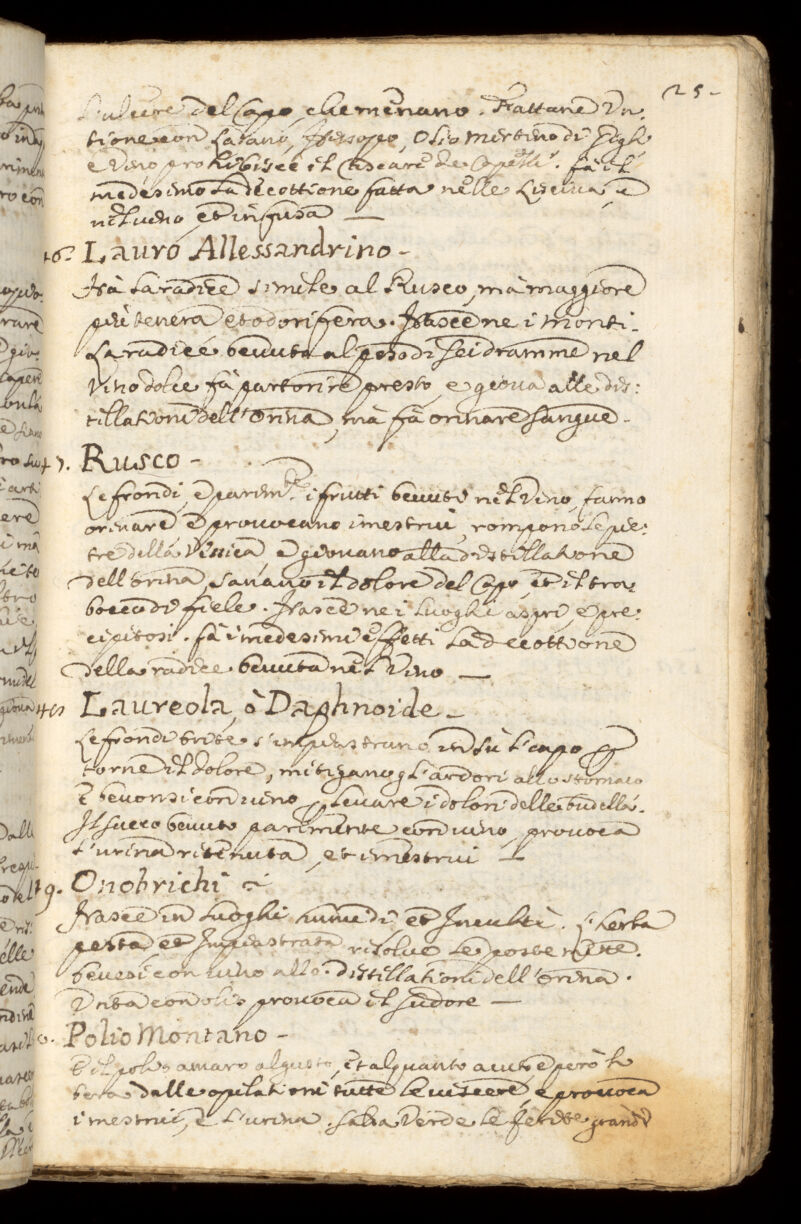 25-
L'ulcere del Capo, che menano. Fattane Un:
tione con Ladano, Hissopo, Olio Mertino di Gigli
e Vino prohibisce il Cascare de Capelli. Fà il
medesimo la decottione fatta nelle Liscive, è
nel vino, et infusa —
46. Lauro Allessandrino -
Hà la radice simile al Rusco, mà maggiore
più tenera et odorifera. Nasce ne i monti.
La radice bevuta al peso di sei dramme nel
vino dolce fà partorire presto, e giova alle dis:
tillationi dell'Orina, mà fà orinare sangue.
47. Rusco -
Le frondi, è parim.te i frutti bevuti nel Vino, fanno
orinare è provocano i mestrui, rompono le pie:
tre della Vissica, è giovano alla distillatione
dell'orina, sanano il dolore del Capo, et il tra:
bocco di fiele. Nasce ne i Luoghi aspri, è pre:
cipitosi. Fà i medesimi effetti la decottione
della radice bevuta nel Vino —
48 Laureola, ò Daphnoide -
Le frondi trite s'impiastrano in sù l'capo p
torne il dolore, mitigano gl'ardori allo stomaco
è bevonsi con vino p levare i dolori delle budella.
Il succo bevuto parimente con vino, provoca
l'urina ritenuta, et i mestrui —
49. Onobrichi
Nasce in Luoghi humidi, et Inculti. L'herba
pesta et Impiastrata risolve le posteme.
bevesi con vino allo distillationi dell'orina.
Unta con olio provoca il sudore —
50. Polio Montano -
È il polio amaro al gusto, et alquanto acuto è però li
bera dalle opilationi tutte le viscere, e provoca
i mestrui, è l'urina. Salda Verde le ferite grandi